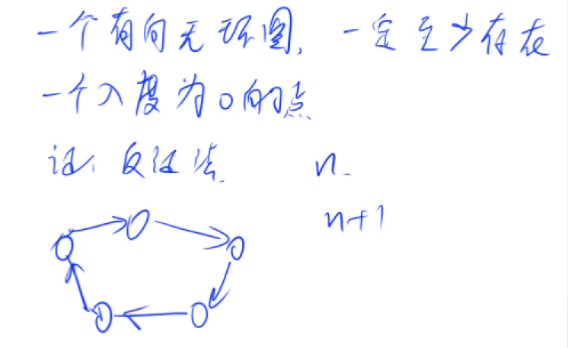 一个有向无环图, 一定至少存在
一个入度为0的点
证: 反证法 n
n+1